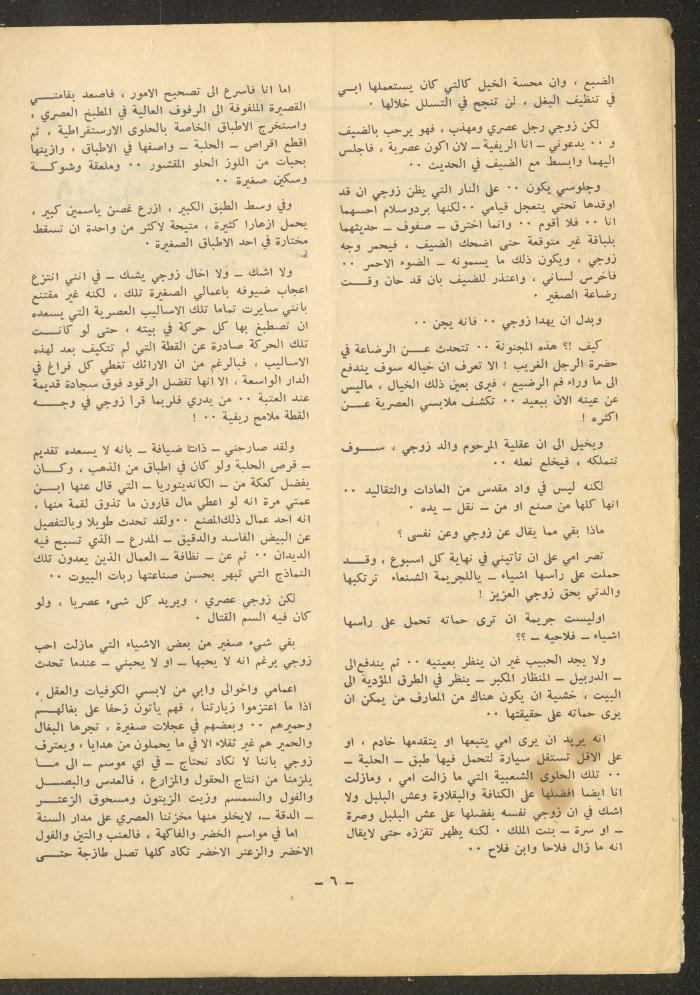 الضبع ، وان محسة الخيل كالتي كان يستعملها ابي
في تنظيف البغل ، لن تنجح في التسلل خلالها ٠
لكن زوجي رجل عصري ومهذب ، فهو يرحب بالضيف
و ٠٠ يدعوني ــ انا الريفية ــ لان اكون عصرية ، فاجلس
اليهما وابسط مع الضيف في الحديث ٠٠
وجلوسي يكون ٠٠ على النار التي يظن زوجي ان قد
اوقدها تحتي يتعجل قيامي ٠٠لكنها بردوسلام احسهما
انا ٠٠ فلا أقوم ٠٠ وانما اخترق ــ صفوف ــ حديثهما
بلباقة غير متوقعة حتى اضحك الضيف ، فيحمر وجه
زوجي ، ويكون ذلك ما يسمونه ــ الضوء الاحمر ٠٠
فاخرس لساني ، واعتذر للضيف بان قد حان وقــت
رضاعة الصغير ٠
وبدل ان يهدا زوجي ٠٠ فانه يجن ٠٠
كيف !؟ هذه المجنونة ٠٠ تتحدث عـــن الرضاعة في
حضرة الرجل الغريب ! الا تعرف ان خياله سوف يندفع
الى ما وراء فم الرضيع ، فيرى بعين ذلك الخيال ، ماليس
عن عينه الان ببعيد ٠٠ تكشف ملابسي العصرية عـــن
اكثره !
ويخيل الى ان عقلية المرحوم والد زوجي ، ســوف
تتملكه ، فيخلع نعله ٠٠
لكنه ليس في واد مقدس من العادات والتقاليد ٠٠
انها كلها من صنع او من ــ نقل ــ يده ٠
ماذا بقي مما يقال عن زوجي وعن نفسى ؟
تصر امي على ان تأتيني في نهاية كل اسبوع ، وقــد
حملت على رأسها اشياء ــ ياللجريمة الشنعاء ترتكبها
والدتي بحق زوجي العزيز !
اوليست جريمة ان ترى حماته تحمل على رأسها
اشياء ــ فلاحيه ــ ؟؟
ولا يجد الحبيب غير ان ينظر بعينيه ٠٠ ثم يندفع‌الى
ــ الدربيل ــ المنظار المكبر ــ ينظر في الطرق المؤدية الى
البيت ، خشية ان يكون هناك من المعارف من يمكن ان
يرى حماته على حقيقتها ٠٠
انه يريد ان يرى امي يتبعها او يتقدمها خادم ، او
على الاقل تستقل سيارة لتحمل فيها طبق ــ الحلبة ــ
٠٠ تلك الحلوى الشعبية التي ما زالت امي ، ومازلت
انا ايضا افضلها على الكنافة والبقلاوة وعش البلبل ولا
اشك في ان زوجي نفسه يفضلها على عش البلبل وصرة
ــ او سرة ــ بنت الملك ٠ لكنه يظهر تقززه حتى لايقال
انه ما زال فلاحا وابن فلاح ٠٠
اما انا فاسرع الى تصحيح الامور ، فاصعد بقامتــي
القصيرة الملفوفة الى الرفوف العالية في المطبخ العصري ،
واستخرج الاطباق الخاصة بالحلوى الارستقراطية ، ثم
اقطع اقراص ــ الحلبة ــ واصفها في الاطباق ، وازينها
بحبات من اللوز الحلو المقشور ٠٠ وملعقة وشوكــة
وسكين صغيرة ٠٠
وفي وسط الطبق الكبير ، ازرع غصن ياسمين كبير ،
يحمل ازهارا كثيرة ، متيحة لاكثر من واحدة ان تسقط
مختارة في احد الاطباق الصغيرة ٠
ولا اشك ــ ولا اخال زوجي يشك ــ في انني انتزع
اعجاب ضيوفه باعمالي الصغيرة تلك ، لكنه غير مقتنع
بانني سايرت تماما تلك الاساليب العصرية التي يسعده
ان تصطبغ بها كل حركة في بيته ، حتى لو كانــت
تلك الحركة صادرة عن القطة التي لم تتكيف بعد لهذه
الاساليب ، فبالرغم من ان الارائك تغطي كل فراغ في
الدار الواسعة ، الا انها تفضل الرقود فوق سجادة قديمة
عند العتبة ٠٠ من يدري فلربما قرأ زوجي في وجــه
القطة ملامح ريفية ٠٠ !
ولقد صارحني ــ ذات ضيافة ــ بانه لا يسعده تقديم
ــ قرص الحلبة ولو كان في اطباق من الذهب ، وكــان
يفضل كعكة من ــ الكانديتوريا ــ التي قال عنها ابــن
عمتي مرة انه لو اعطي مال قارون ما تذوق لقمة منها ،
انه احد عمال ذلك‌المصنع ٠٠ولقد تحدث طويلا وبالتفصيل
عن البيض الفاسد والدقيق ــ المدرع ــ الذي تسبح فيه
الديدان ٠٠ ثم عن ــ نظافة ــ العمال الذين يعدون تلك
النماذج التي تبهر بحسن صناعتها ربات البيوت ٠٠
لكن زوجي عصري ، ويريد كل شىء عصريا ، ولو
كان فيه السم القتال ٠
بقي شيء صغير من بعض الاشياء التي مازلت احب
زوجي برغم انه لا يحبها ــ او لا يحبني ــ عندما تحدث
اعمامي واخوالى وابي من لابسي الكوفيات والعقل ،
اذا ما اعتزموا زيارتنا ، فهم يأتون زحفا على بغالهــم
وحميرهم ٠٠ وبعضهم في عجلات صغيرة ، تجرها البغال
والحمير هم غير ثقلاء الا في ما يحملون من هدايا ، ويعترف
زوجي باننا لا نكاد نحتاج ــ في اي موسم ــ الى مــا
يلزمنا من انتاج الحقول والمزارع ، فالعدس والبصــل
والفول والسمسم وزيت الزيتون ومسحوق الزعتــر
ــ الدقة ــ، لايخلو منها مخزننا العصري على مدار السنة
اما في مواسم الخضر والفاكهة ، فالعنب والتين والفول
الاخضر والزعتر الاخضر تكاد كلها تصل طازجة حتــى
ــ ٦ ــ